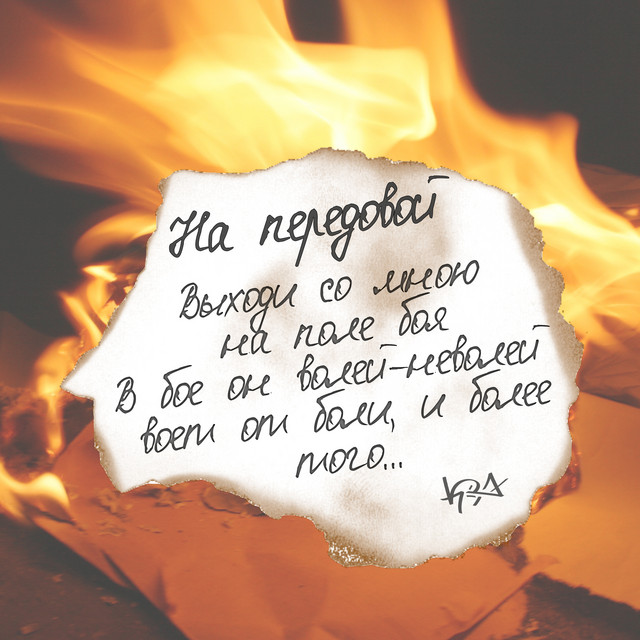 На передовой
Выходи со мною
на поле боя
В бое он волей-неволей
воет от боли, и более
того...